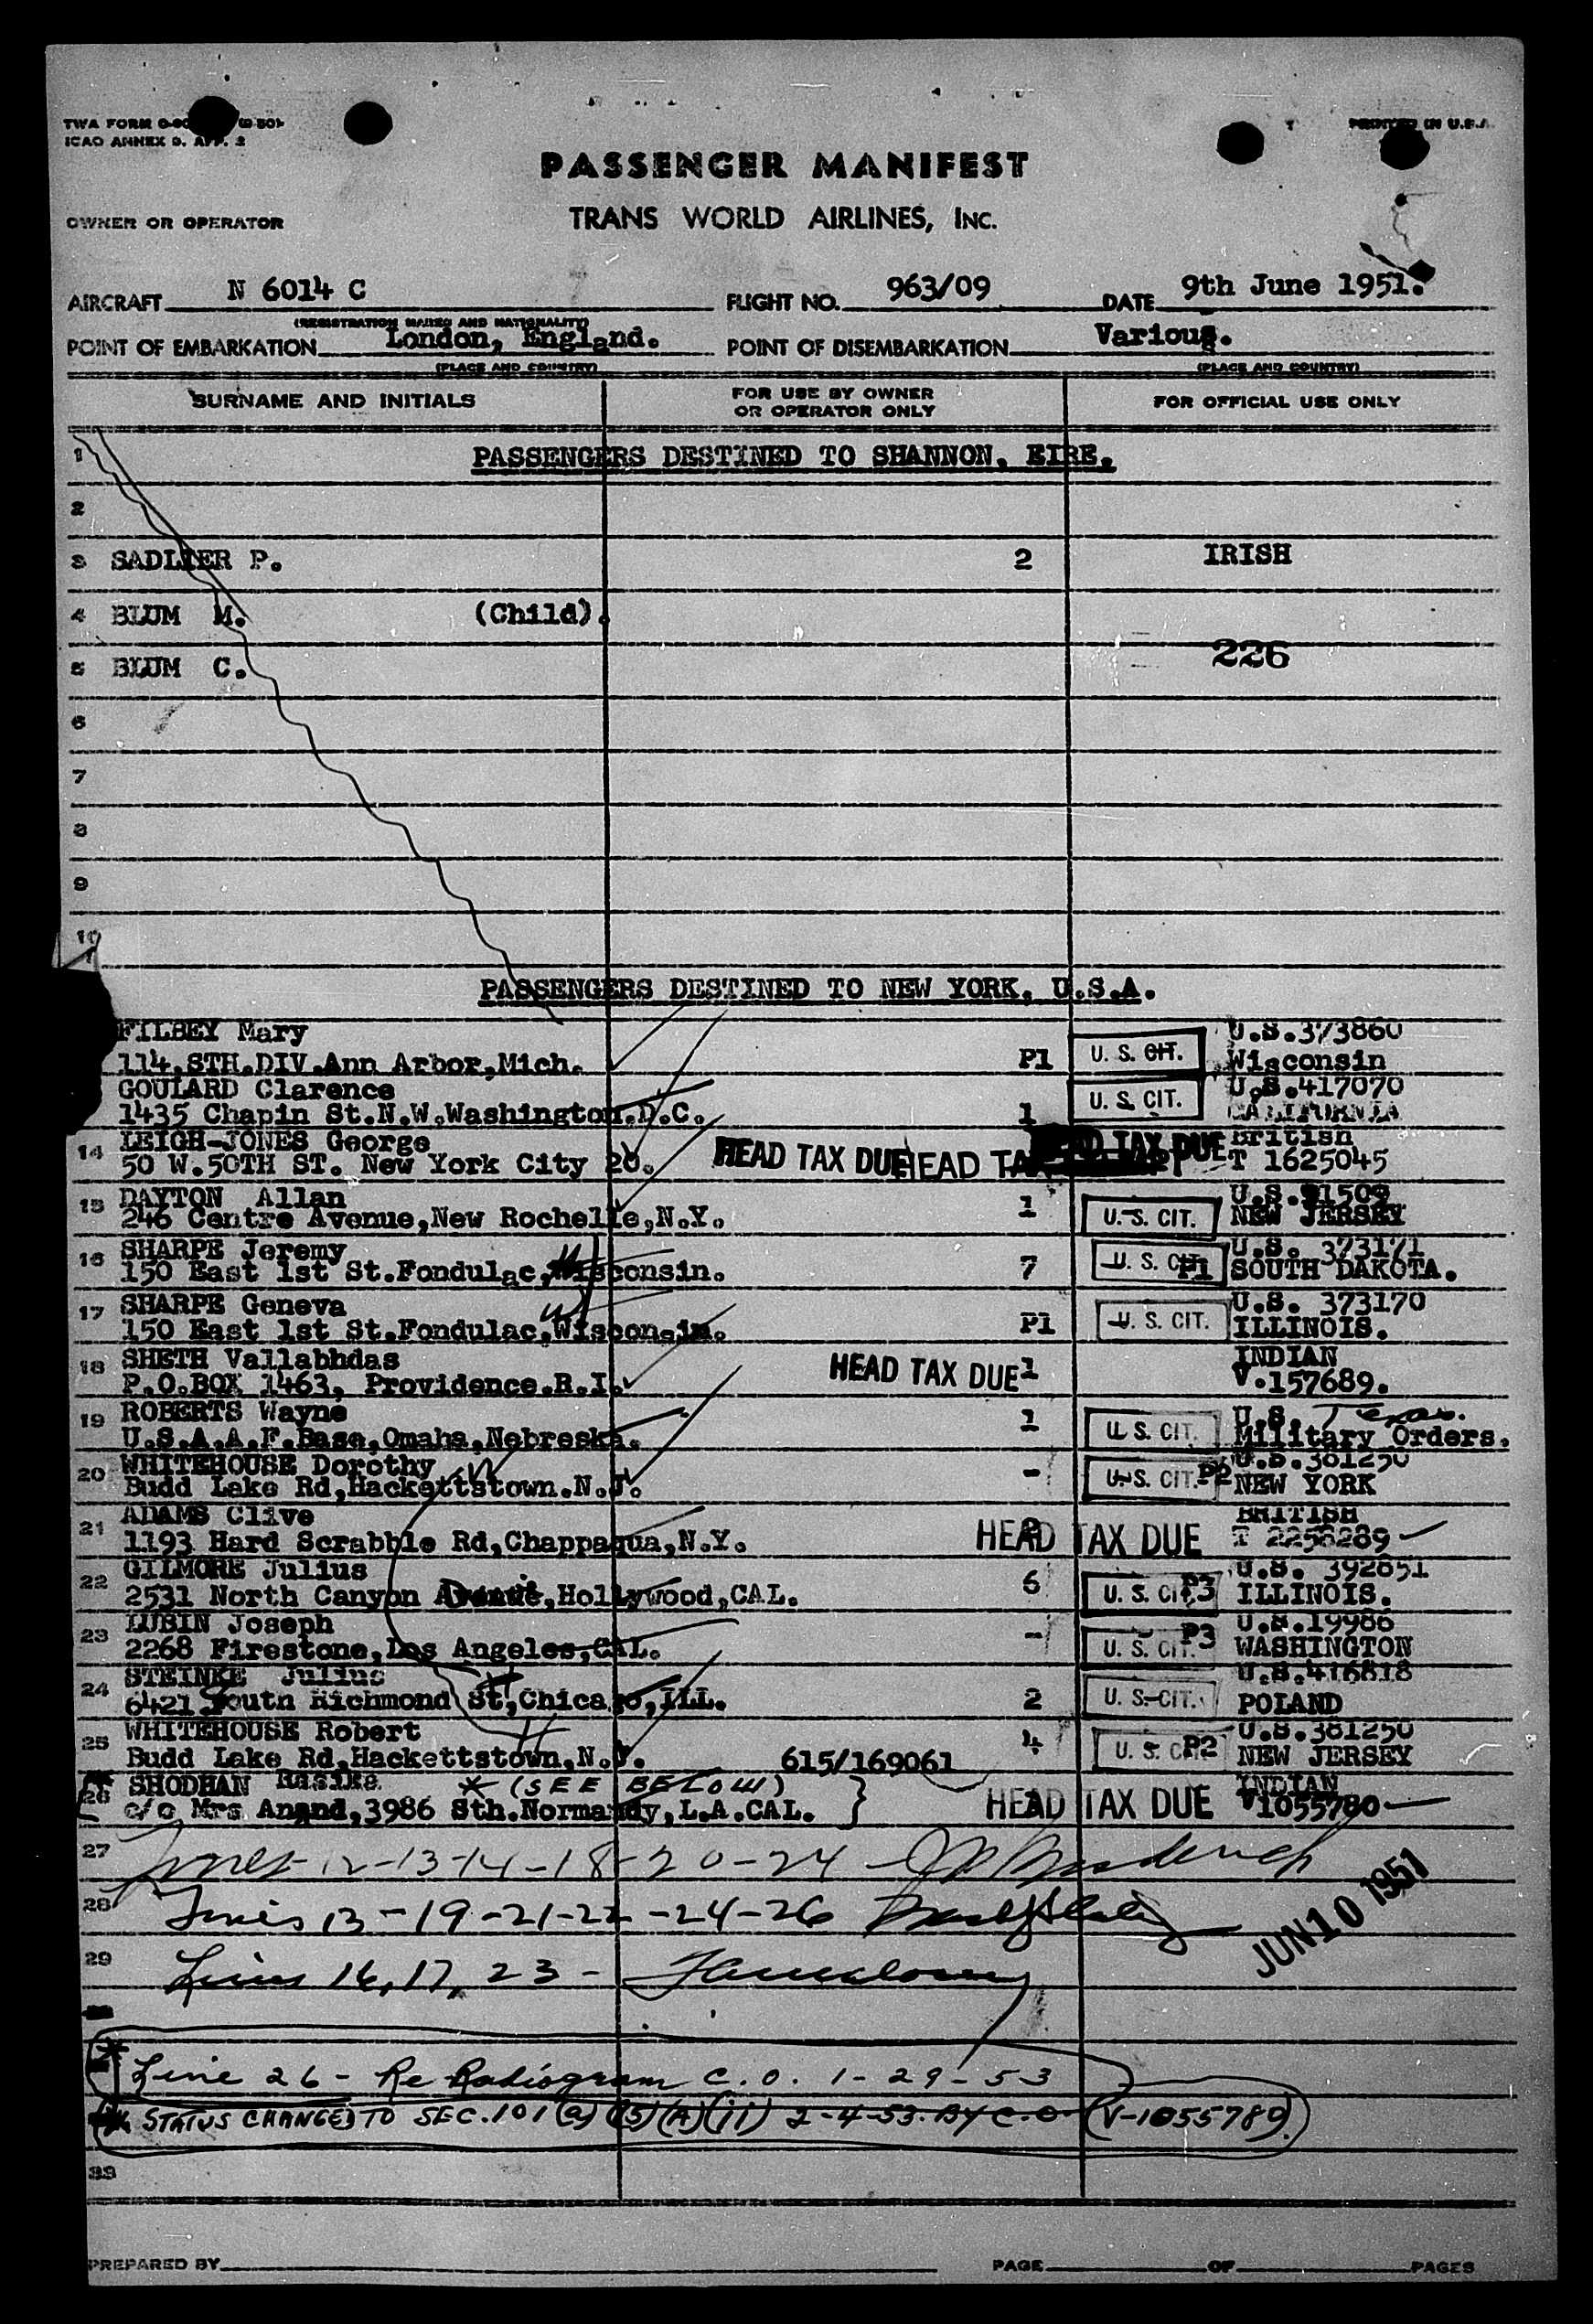 TWA FORM
ICAO ANNEX 9. APP. 2
PRINTED IN U.S.A.
PASSENGER MANIFEST
OWNER OR OPERATOR
TRANS WORLD AIRLINES, INC.
AIRCRAFT N 6014 C FLIGHT NO. 963/09 DATE 9th June 1951.
(REGISTRATION MARKS AND NATIONALITY)
POINT OF EMBARKATION London, England. POINT OF DISEMBARKATION Various.
(PLACE AND COUNTRY) (PLACE AND COUNTRY)
SURNAME AND INITIALS FOR USE BY OWNER OR OPERATOR ONLY FOR OFFICIAL USE ONLY
1 PASSENGERS DESTINED TO SHANNON, EIRE.
2
3 SADLIER P. 2 IRISH
4 BLUM M. (Child).
226
5 BLUM C.
6
7
8
9
10
PASSENGERS DESTINED TO NEW YORK, U.S.A.
FILBEY Mary U.S.373860
114,STH.DIV.Ann Arbor,Mich. P1 U. S. CIT. Wisconsin
GOULARD Clarence U.S.417070
1435 Chapin St.N.W.Washington.D.C. 1 U. S. CIT. CALIFORNIA
14 LEIGH-JONES George HEAD TAX DUE HEAD TAX HEAD TAX DUE British
50 W.50TH ST. New York City 20. T 1625045
15 DAYTON Allan U.S.91509
246 Centre Avenue,New Rochelle,N.Y. 1 U. S. CIT. NEW JERSEY
16 SHARPE Jeremy U.S. 373171
150 East 1st St.Fondulac,Wisconsin. 7 U. S. CIT. P1 SOUTH DAKOTA.
17 SHARPE Geneva U.S. 373170
150 East 1st St.Fondulac,Wisconsin. P1 U. S. CIT. ILLINOIS.
18 SHETH Vallabhdas HEAD TAX DUE 1 INDIAN
P.O.BOX 1463, Providence.R.I. V.157689.
19 ROBERTS Wayne 1 U.S. Texas.
U.S.A.A.F.Base,Omaha,Nebreska. U. S. CIT. Military Orders.
20 WHITEHOUSE Dorothy U.S.381250
Budd Lake Rd,Hackettstown.N.J. - U. S. CIT. P2 NEW YORK
21 ADAMS Clive BRITISH
1193 Hard Scrabble Rd,Chappaqua,N.Y. HEAD TAX DUE T 2258289
22 GILMORE Julius U.S. 392851
2531 North Canyon Avenue,Hollywood,CAL. 6 U. S. CIT. P3 ILLINOIS.
23 LUBIN Joseph U.S.19986
2268 Firestone,Los Angeles,CAL. - U. S. CIT. P3 WASHINGTON
24 STEINKE Julius U.S.416818
6421 South Richmond St,Chicago,ILL. 2 U. S. CIT. POLAND
25 WHITEHOUSE Robert U.S.381250
Budd Lake Rd,Hackettstown,N.J. 615/169061 4 U. S. CIT. P2 NEW JERSEY
26 SHODHAN Rasika * (SEE BELOW) INDIAN
c/o Mrs Anand,3986 Sth.Normandy,L.A.CAL. HEAD TAX DUE V1055780
27 Lines 12-13-14-18-20-24
28 Lines 13-19-21-22-24-26
JUN 10 1951
29 Lines 16,17,23-
* Line 26 - Re Radiogram C.O. 1-29-53
STATUS CHANGED TO SEC.101(a)(15)(A)(ii) 2-4-53 BY C.O. (V-1055789)
33
PREPARED BY PAGE OF PAGES